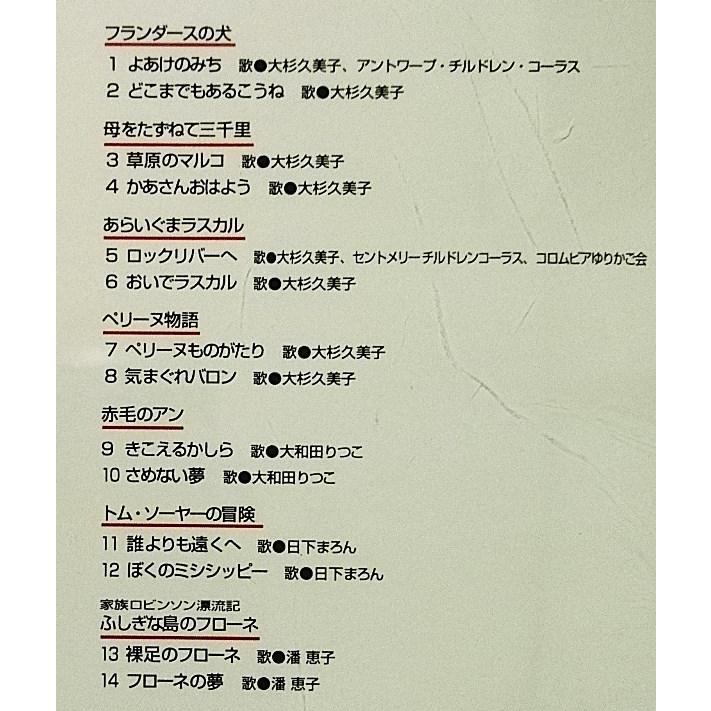 フランダースの犬
1 よあけのみち 歌●大杉久美子、アントワープ・チルドレン・コーラス
2 どこまでもあるこうね 歌●大杉久美子
母をたずねて三千里
3 草原のマルコ 歌●大杉久美子
4 かあさんおはよう 歌●大杉久美子
あらいぐまラスカル
5 ロックリバーへ 歌●大杉久美子、セントメリーチルドレンコーラス、コロムビアゆりかご会
6 おいでラスカル 歌●大杉久美子
ペリーヌ物語
7 ペリーヌものがたり 歌●大杉久美子
8 気まぐれバロン 歌●大杉久美子
赤毛のアン
9 きこえるかしら 歌●大和田りつこ
10 さめない夢 歌●大和田りつこ
トム・ソーヤーの冒険
11 誰よりも遠くへ 歌●日下まろん
12 ぼくのミシシッピー 歌●日下まろん
家族ロビンソン漂流記
ふしぎな島のフローネ
13 裸足のフローネ 歌●潘 恵子
14 フローネの夢 歌●潘 恵子